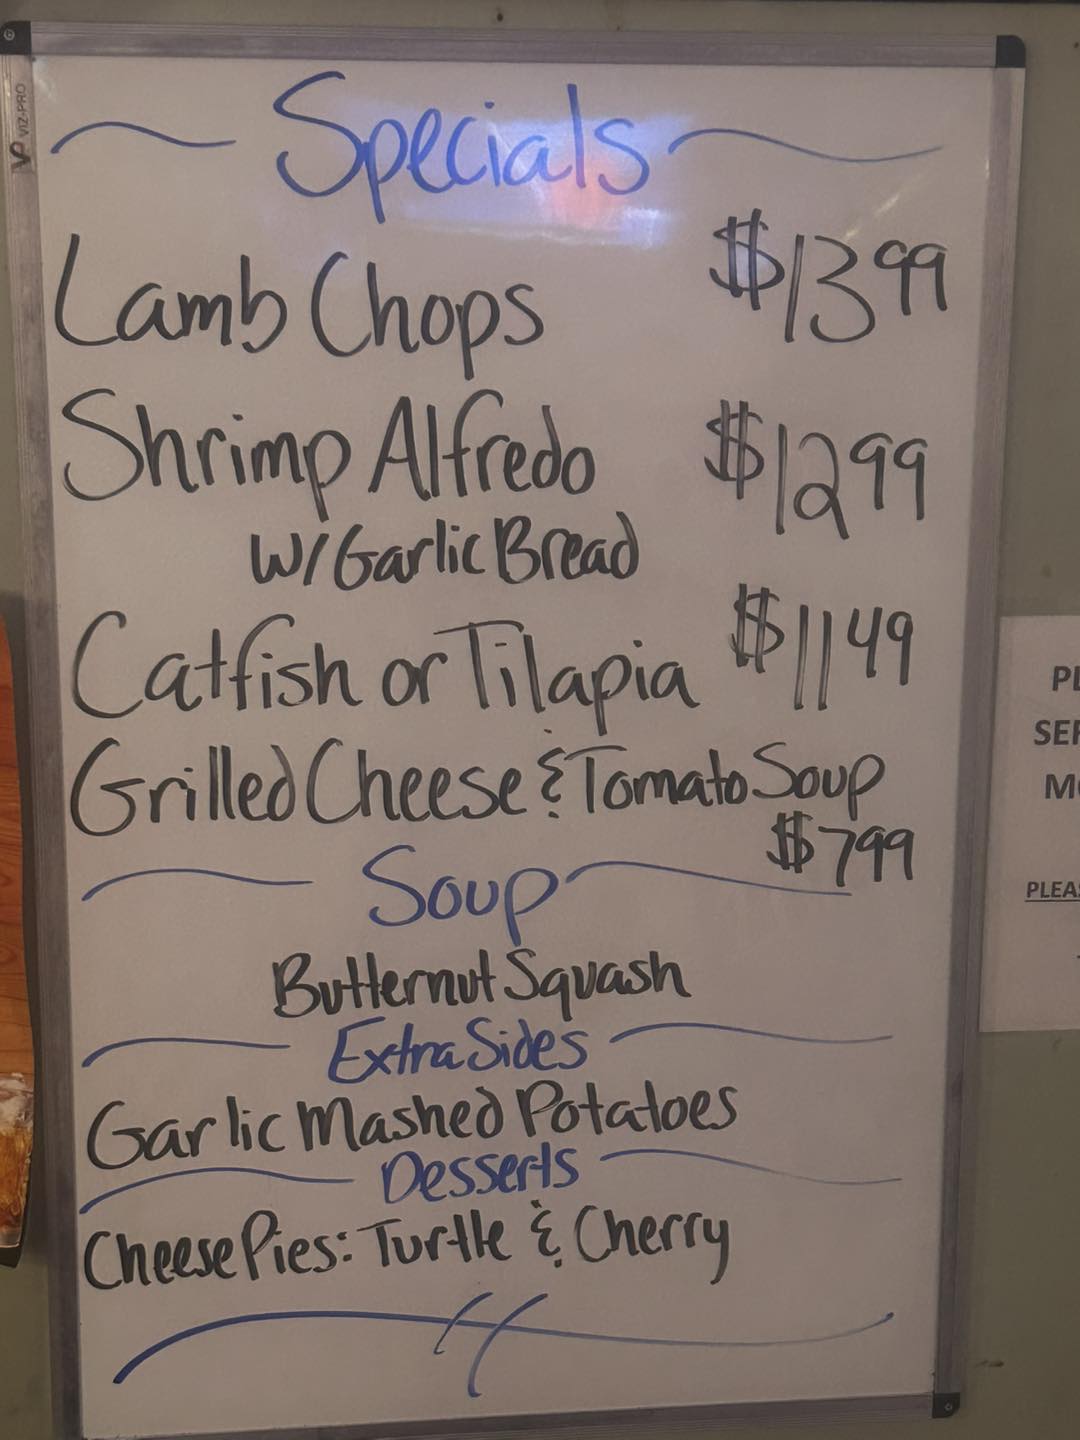 Specials
Lamb Chops $13 99
Shrimp Alfredo $12 99
W/Garlic Bread
Catfish or Tilapia $11 49
Grilled Cheese & Tomato Soup
$7 99
Soup
Butternut Squash
Extra Sides
Garlic Mashed Potatoes
Desserts
Cheese Pies: Turtle & Cherry
VIZ-PRO